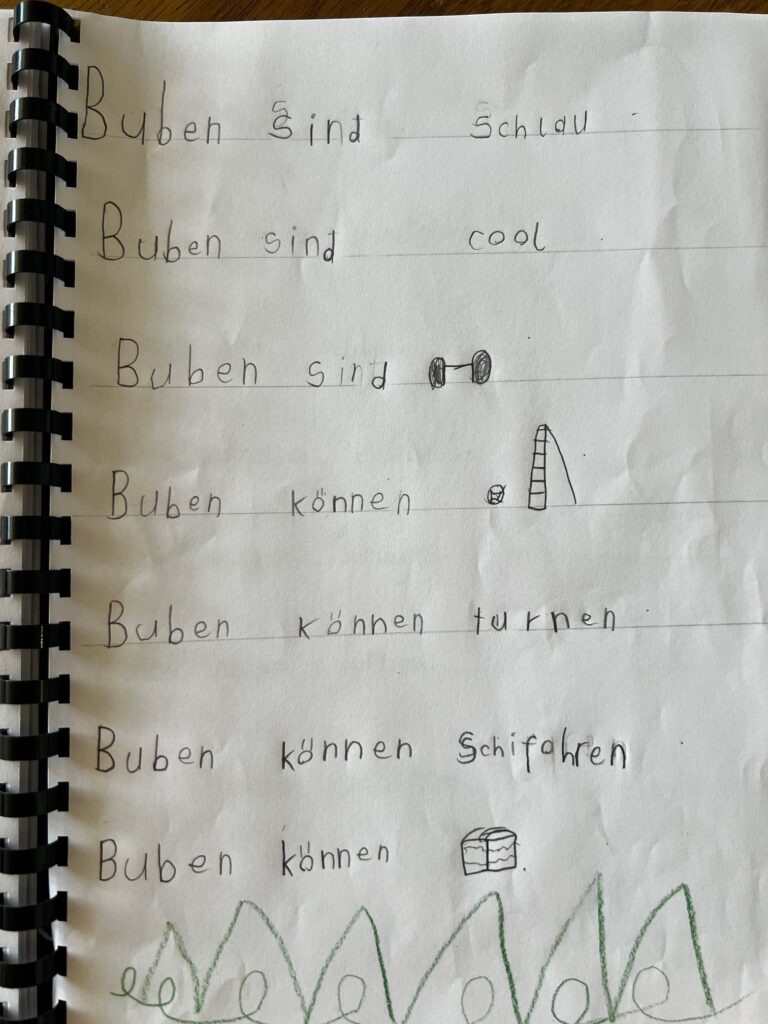 Buben sind schlau.
Buben sind cool.
Buben sind
Buben können
Buben können turnen.
Buben können Schifahren.
Buben können .